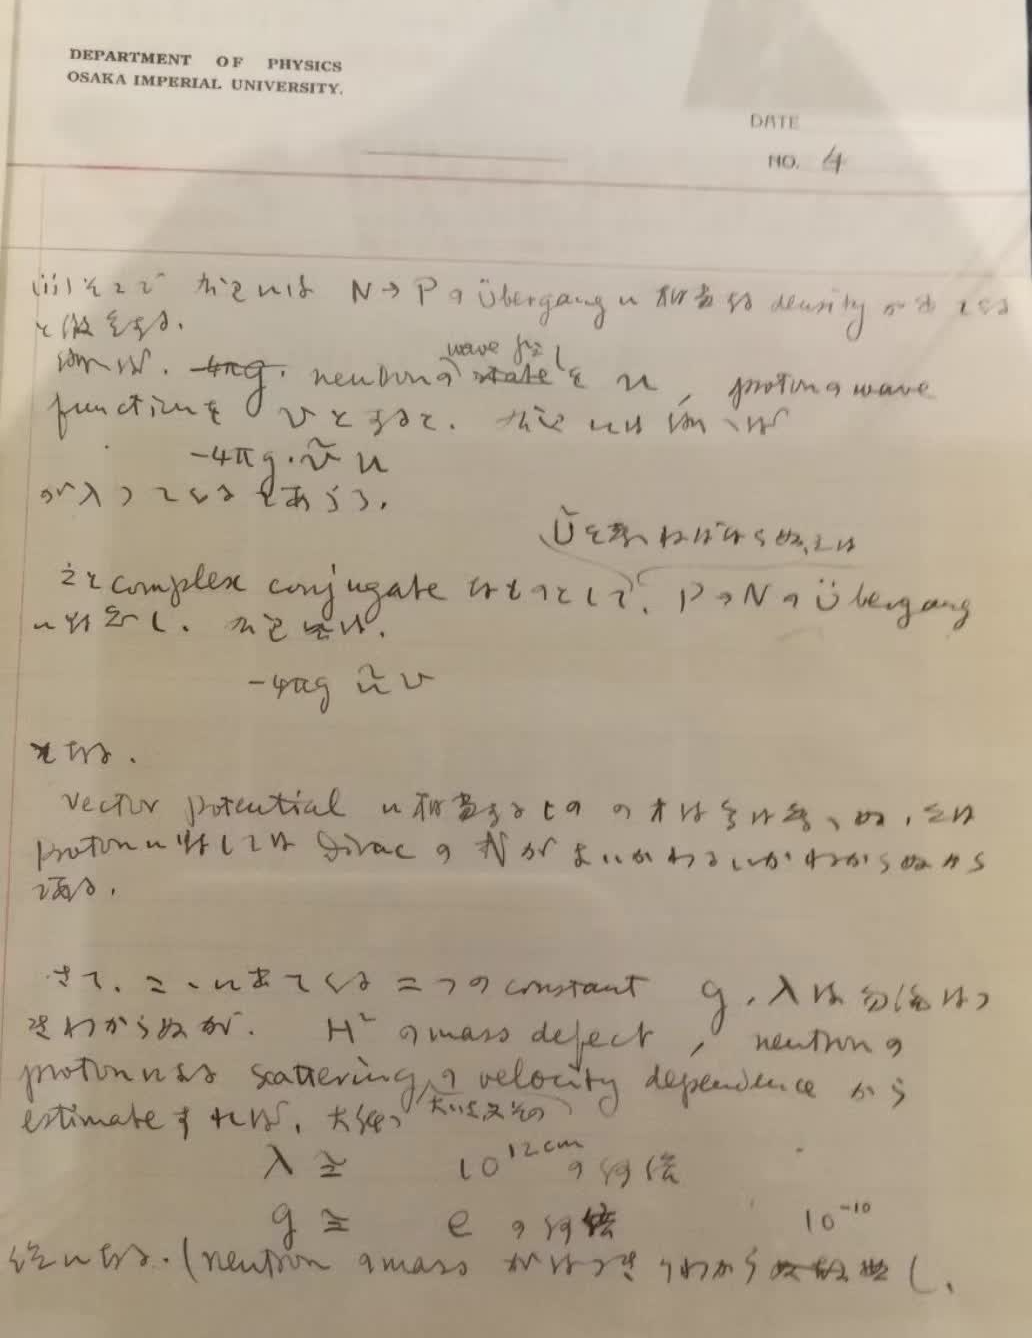 DEPARTMENT OF PHYSICS
OSAKA IMPERIAL UNIVERSITY.
DATE
NO. 4
(iii) そこで 右辺には N→P の Übergang に相当する density が出てくる
と假定する.
wave
例へば. 4πg. neutron の state を u, proton の wave
function を v とすると. 右辺には 例へば
-4πg・ṽ u
が入つてくるであらう.
Ũ を考へねばならぬ,
complex conjugate なものとして. P→N の Übergang
に対応し. 右辺
-4πg ũ v
となる.
Vector potential に相当するものの 方は今は考へぬ,
proton に対しては Dirac の が よいかわるいかわからぬから
である.
さて, こゝに出てくる二つの constant g, λ は勿論はつ
きりわからぬが. H² の mass defect, neutron の
proton による scattering の velocity dependence から
estimate すれば, 大体
λ ≅ 10¹² cm の 倍
g ≅ e の 倍 10⁻¹⁰
位になる. (neutron の mass がはつきりわから し.